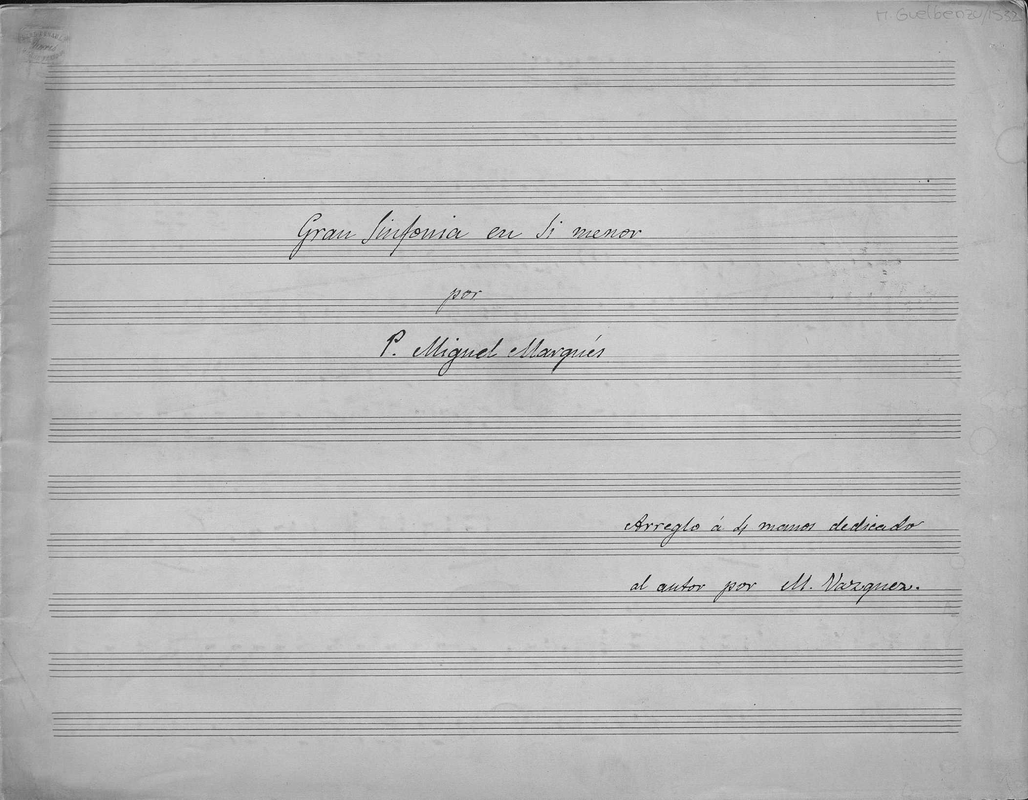 M. Guelbenzu/1532
Gran Sinfonia en Si menor
por
P. Miguel Marqués
Arreglo á 4 manos dedicado
al autor por M. Vazquez.